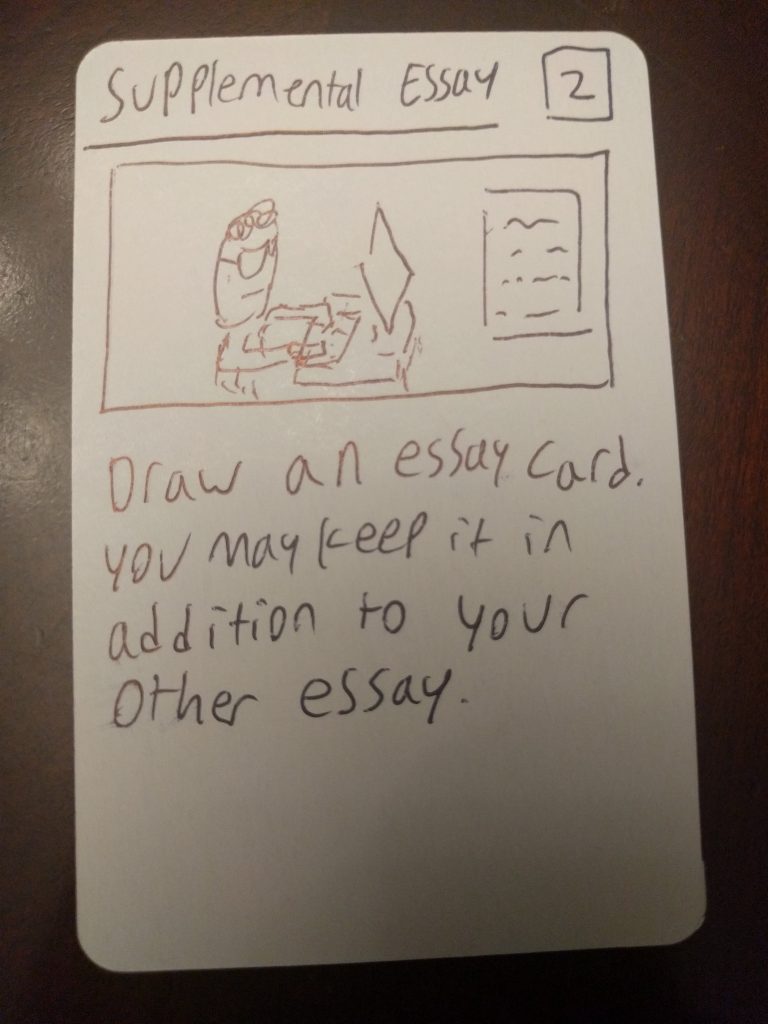 Supplemental Essay 2
Draw an essay card.
you may keep it in
addition to your
other essay.